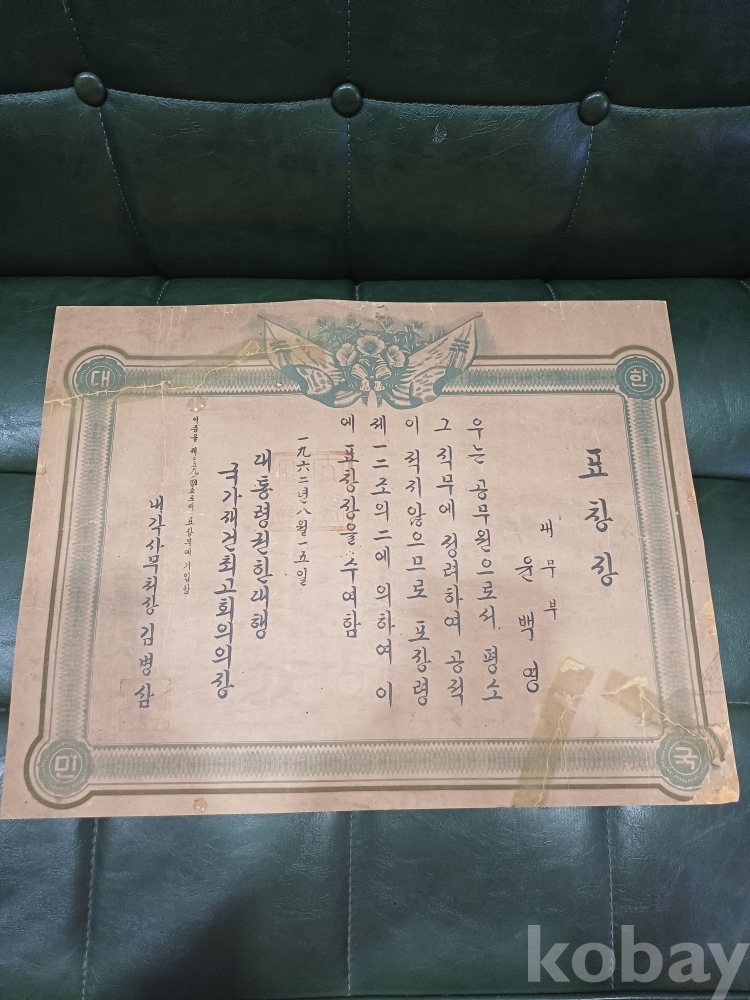 표창장
내무부
윤백영
우는 공무원으로서 평소
그 직무에 정려하여 공적
이 적지않으므로 포장령
제一二조의 二에 의하여 이
에 표창장을 수여함
一九六二년八월一五일
대통령권한대행
국가재건최고회의의장
이증을 제 호로써 표창부에 기입함
내각사무처장 김병삼
대
한
민
국
kobay